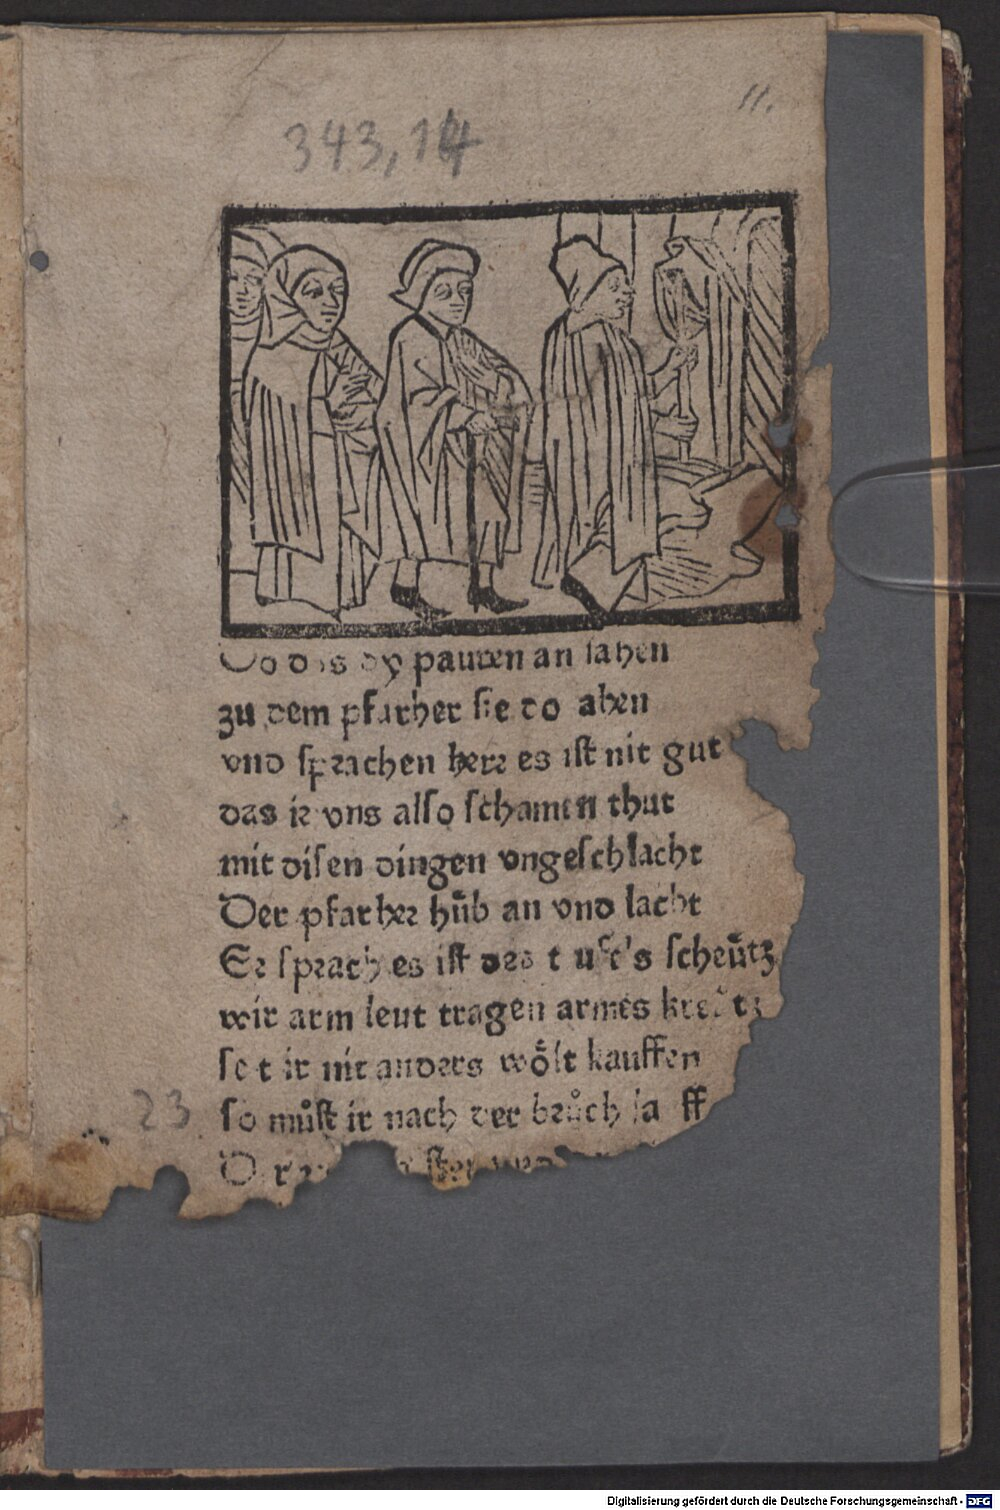 11.
343,14
Do das dy pauren an sahen
zu dem pfarher sie do aben
vnd sprachen herr es ist nit gut
das ir vns also schamen thut
mit disen dingen vngeschlacht
Der pfarher hůb an vnd lacht
Er sprach es ist des scheůtz
wir arm leut tragen armes
ir nit anders wőlt kauffen
23 so můst ir nach der brůch
Digitalisierung gefördert durch die Deutsche Forschungsgemeinschaft - DFG